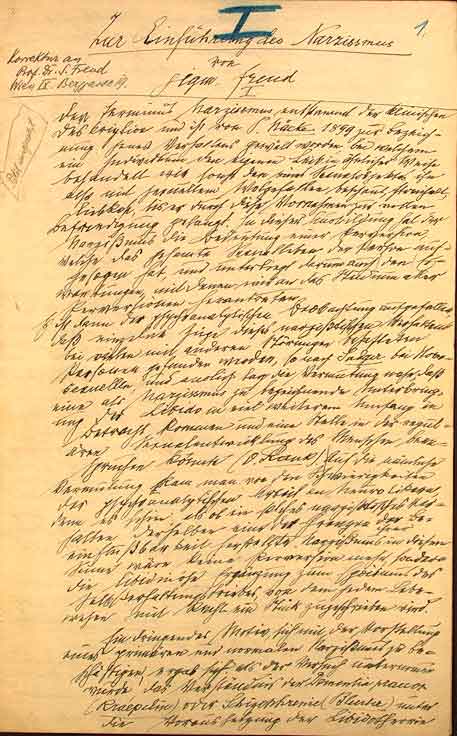 I
1
Zur Einführung des Narzissmus
von
Sigm. Freud
Korrektur an
Prof. Dr. S. Freud
Wien IX. Berggasse 19.
I
Der Terminus Narzissmus entstammt der klinischen
Deskription und ist von P. Näcke 1899 zur Bezeich-
nung jenes Verhaltens gewählt worden, bei welchem
ein Individuum den eigenen Leib in ähnlicher Weise
behandelt wie sonst den eines Sexualobjekts, ihn
also mit sexuellem Wolgefallen beschaut, streichelt,
liebkost, bis es durch diese Vornahmen zur vollen
Befriedigung gelangt. In dieser Ausbildung hat der
Narzißmus die Bedeutung einer Perversion,
welche das gesamte Sexualleben der Person auf-
gesogen hat und unterliegt darum auch den Er-
wartungen, mit denen wir an das Studium aller
Perversionen herantreten.
Es ist dann der psychoanalytischen Beobachtung aufgefallen,
daß einzelne Züge des narzißtischen Verhaltens
bei vielen mit anderen Störungen behafteten
Personen gefunden werden, so nach Sadger bei Homo-
sexuellen, und endlich lag die Vermutung nahe, daß
eine als Narzissmus zu bezeichnende Unterbring-
ung der Libido in viel weiterem Umfang in
Betracht kommen und eine Stelle in der regul-
ären Sexualentwicklung des Menschen bean-
spruchen könnte (O. Rank). Auf die nämliche
Vermutung kam man von den Schwierigkeiten
der psychoanalytischen Arbeit an Neurotikern
denn es schien, als ob ein solches narzißtisches Ver-
halten derselben eine der Grenzen ihrer Be-
einflußbarkeit herstellte. Narzißmus in diesem
Sinne wäre keine Perversion mehr, sondern
die libidinöse Ergänzung zum Egoismus des
Selbsterhaltungstriebes, von dem jedem Lebe-
wesen mit Recht ein Stück zugeschrieben wird.
Ein dringendes Motiv, sich mit der Vorstellung
eines primären und normalen Narzißmus zu be-
schäftigen, ergab sich, als der Versuch unternommen
wurde, das Verständnis der Dementia praecox
(Kraepelin) oder Schizophrenie (Bleuler) unter
die Voraussetzung der Libidotheorie